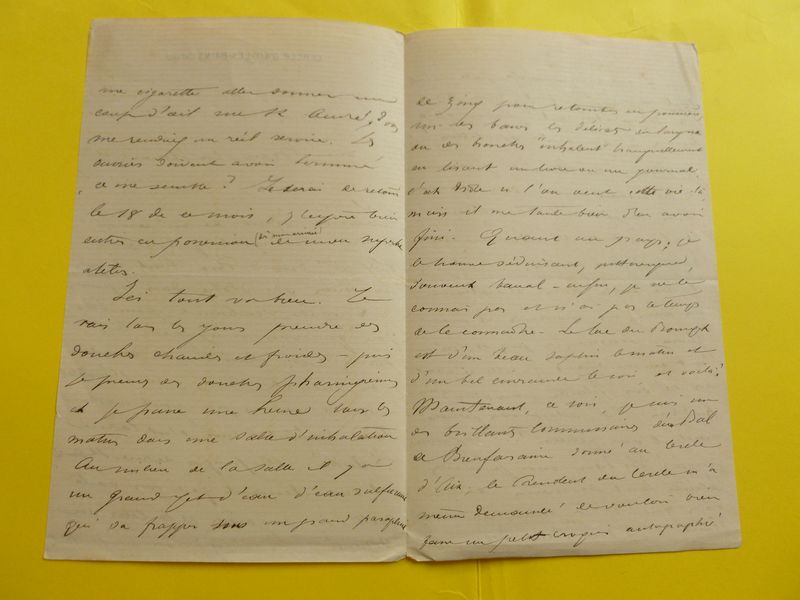 une cigarette aller donner un
coup d'œil me 12
me rendriez un réel service. Les
ouvriers doivent avoir terminé
ce me semble? Je serai de retour
le 18 de ce mois, j'espère bien
entrer en possession de mon superbe
atelier.
Ici tout va bien. Je
vais tous les jours prendre des
douches chaudes et froides - puis
je prends des douches pharingiennes
et je passe une heure tous les
matins dans une salle d'inhalation
Au milieu de la salle il y a
un grand jet d'eau d'eau sulfureuse
qui va frapper sous un grand parapluie
de zinc pour retomber en poussière
ou des bouches "inhalent" tranquillement
en lisant un livre ou un journal.
c'est drôle si l'on veut cette vie là
mais il me tarde bien d'en avoir
fini. Quant au pays, je
le trouve séduisant, pittoresque,
souvent banal - enfin, je ne le
connais pas et n'ai pas le temps
de le connaître - Le lac du Bourget
est d'un beau saphir le matin et
d'un bel émeraude le soir et voilà!
Maintenant, ce soir, je suis un
des brillants commissaires du Bal
de Bienfaisance donné au Cercle
d'Aix. le Président du Cercle m'a
même demandé de vouloir bien
faire un petit croquis autographié